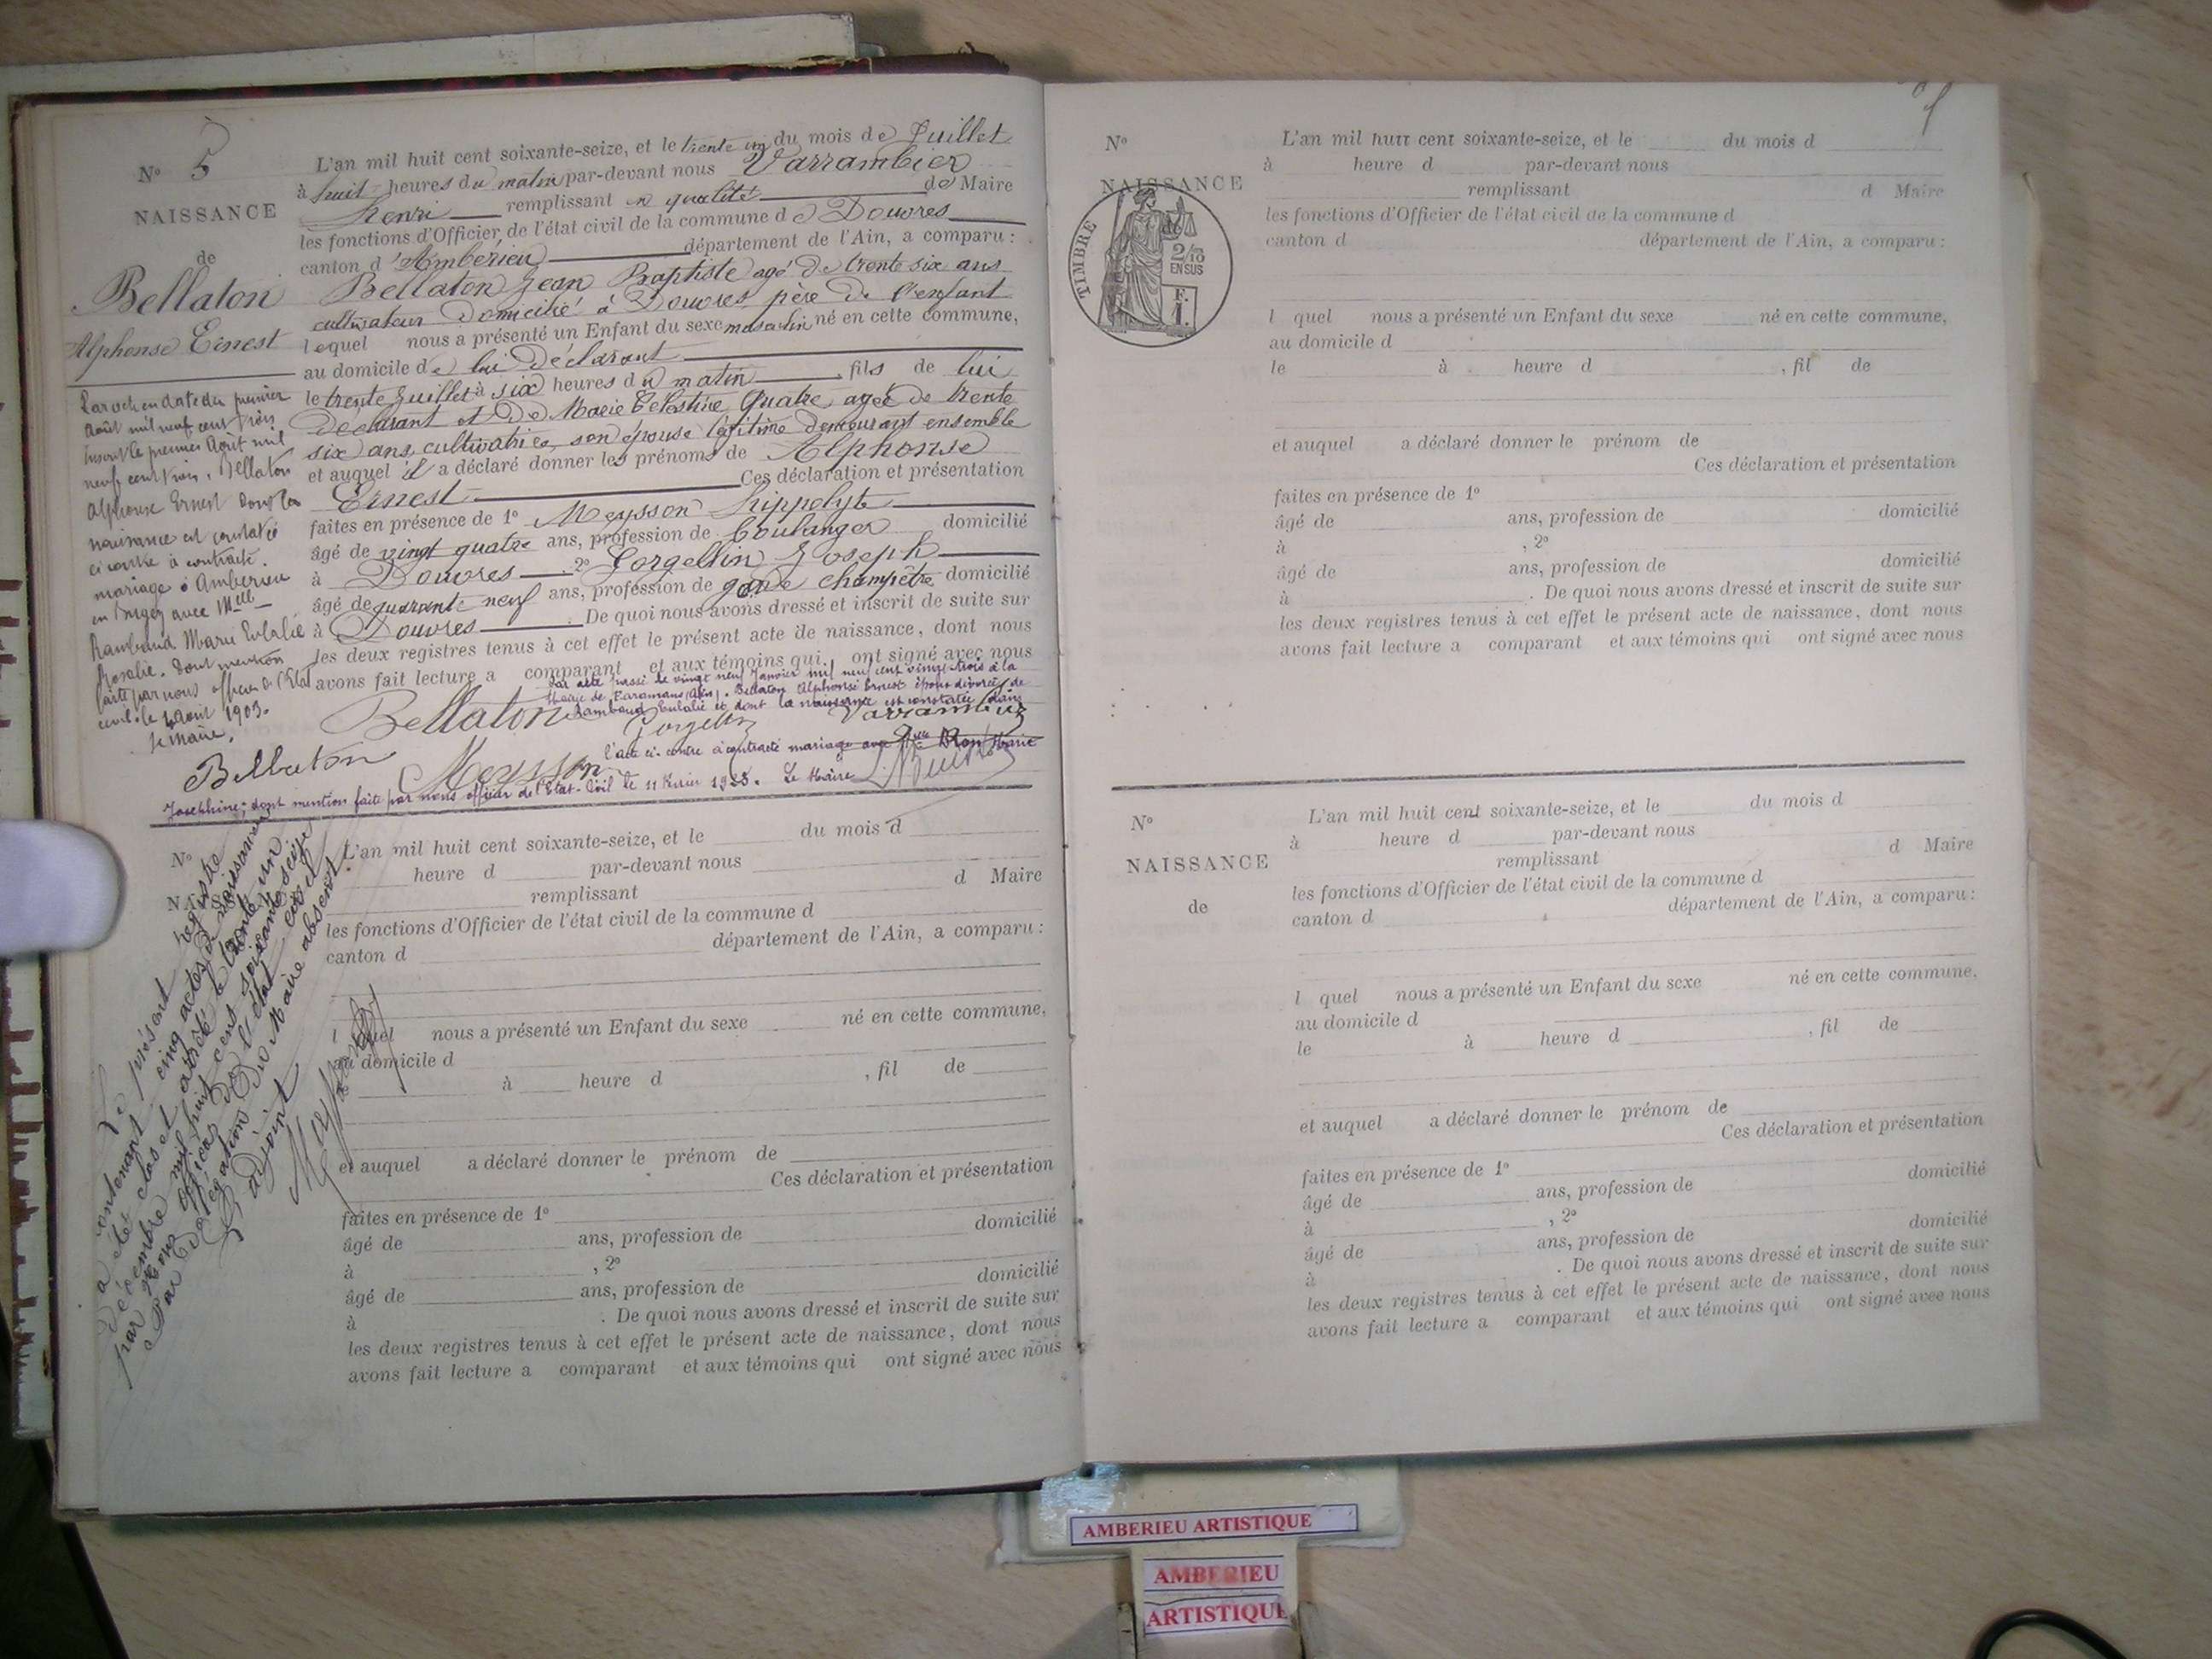 N° 5
NAISSANCE
de
Bellaton
Alphonse Ernest
Par acte en date du premier
Août mil neuf cent trois
inscrit le premier Août mil
neuf cent trois, Bellaton
Alphonse Ernest dont la
naissance est constatée
ci contre à contracté
mariage à Ambérieu
en Bugey avec Melle
Rambaud Marie Eulalie
Rosalie. Dont mention
faite par nous officier de l'Etat
civil le Août 1903.
Le Maire,
Bellaton
L'an mil huit cent soixante-seize, et le trente un du mois de Juillet
à huit heures du matin par-devant nous Varrambier
Henri remplissant en qualité de Maire
les fonctions d'Officier de l'état civil de la commune de Douvres
canton d'Ambérieu département de l'Ain, a comparu :
Bellaton Jean Baptiste agé de trente six ans
cultivateur domicilié à Douvres père de l'enfant
lequel nous a présenté un Enfant du sexe masculin né en cette commune,
au domicile de lui déclarant
le trente Juillet à six heures du matin, fils de lui
déclarant et de Marie Célestine Quatre, agée de trente
six ans, cultivatrice, son épouse légitime demeurant ensemble
et auquel il a déclaré donner les prénoms de Alphonse
Ernest Ces déclaration et présentation
faites en présence de 1° Meysson hippolyte
âgé de vingt quatre ans, profession de boulanger domicilié
à Douvres 2° Gorgellin Joseph
âgé de quarante neuf ans, profession de garde champêtre domicilié
à Douvres. De quoi nous avons dressé et inscrit de suite sur
les deux registres tenus à cet effet le présent acte de naissance, dont nous
avons fait lecture a comparant et aux témoins qui ont signé avec nous
Par acte passé le vingt neuf Janvier mil neuf cent vingt-trois à la
Mairie de Faramans (Ain). Bellaton Alphonse Ernest époux divorcé de
Rambaud Eulalie et dont la naissance est constatée dans
Bellaton Gorgellin Varrambier
l'acte ci-contre a contracté mariage avec Melle Marie
Meysson
Josephine; dont mention faite par nous officier de l'Etat-Civil le 11 1923. Le Maire
N°
NAISSANCE
Le présent registre
contenant cinq actes de naissances
a été clos et arrêté le trente un
décembre mil huit cent soixante seize
par nous officier de l'état civil
Par délégation du Maire absent
L'adjoint
L'an mil huit cent soixante-seize, et le du mois d
heure d par-devant nous
remplissant d Maire
les fonctions d'Officier de l'état civil de la commune d
canton d département de l'Ain, a comparu :
l quel nous a présenté un Enfant du sexe né en cette commune,
au domicile d
à heure d , fil de
et auquel a déclaré donner le prénom de
Ces déclaration et présentation
faites en présence de 1°
âgé de ans, profession de domicilié
à , 2°
âgé de ans, profession de domicilié
à . De quoi nous avons dressé et inscrit de suite sur
les deux registres tenus à cet effet le présent acte de naissance, dont nous
avons fait lecture a comparant et aux témoins qui ont signé avec nous
N°
NAISSANCE
TIMBRE
2/10
EN SUS
F.
1.
L'an mil huit cent soixante-seize, et le du mois d
à heure d par-devant nous
remplissant d Maire
les fonctions d'Officier de l'état civil de la commune d
canton d département de l'Ain, a comparu :
l quel nous a présenté un Enfant du sexe né en cette commune,
au domicile d
le à heure d , fil de
et auquel a déclaré donner le prénom de
Ces déclaration et présentation
faites en présence de 1°
âgé de ans, profession de domicilié
à , 2°
âgé de ans, profession de domicilié
à . De quoi nous avons dressé et inscrit de suite sur
les deux registres tenus à cet effet le présent acte de naissance, dont nous
avons fait lecture a comparant et aux témoins qui ont signé avec nous
N°
NAISSANCE
de
L'an mil huit cent soixante-seize, et le du mois d
à heure d par-devant nous
remplissant d Maire
les fonctions d'Officier de l'état civil de la commune d
canton d département de l'Ain, a comparu :
l quel nous a présenté un Enfant du sexe né en cette commune,
au domicile d
le à heure d , fil de
et auquel a déclaré donner le prénom de
Ces déclaration et présentation
faites en présence de 1°
âgé de ans, profession de domicilié
à , 2°
âgé de ans, profession de domicilié
à . De quoi nous avons dressé et inscrit de suite sur
les deux registres tenus à cet effet le présent acte de naissance, dont nous
avons fait lecture a comparant et aux témoins qui ont signé avec nous
AMBERIEU ARTISTIQUE
AMBERIEU
ARTISTIQUE